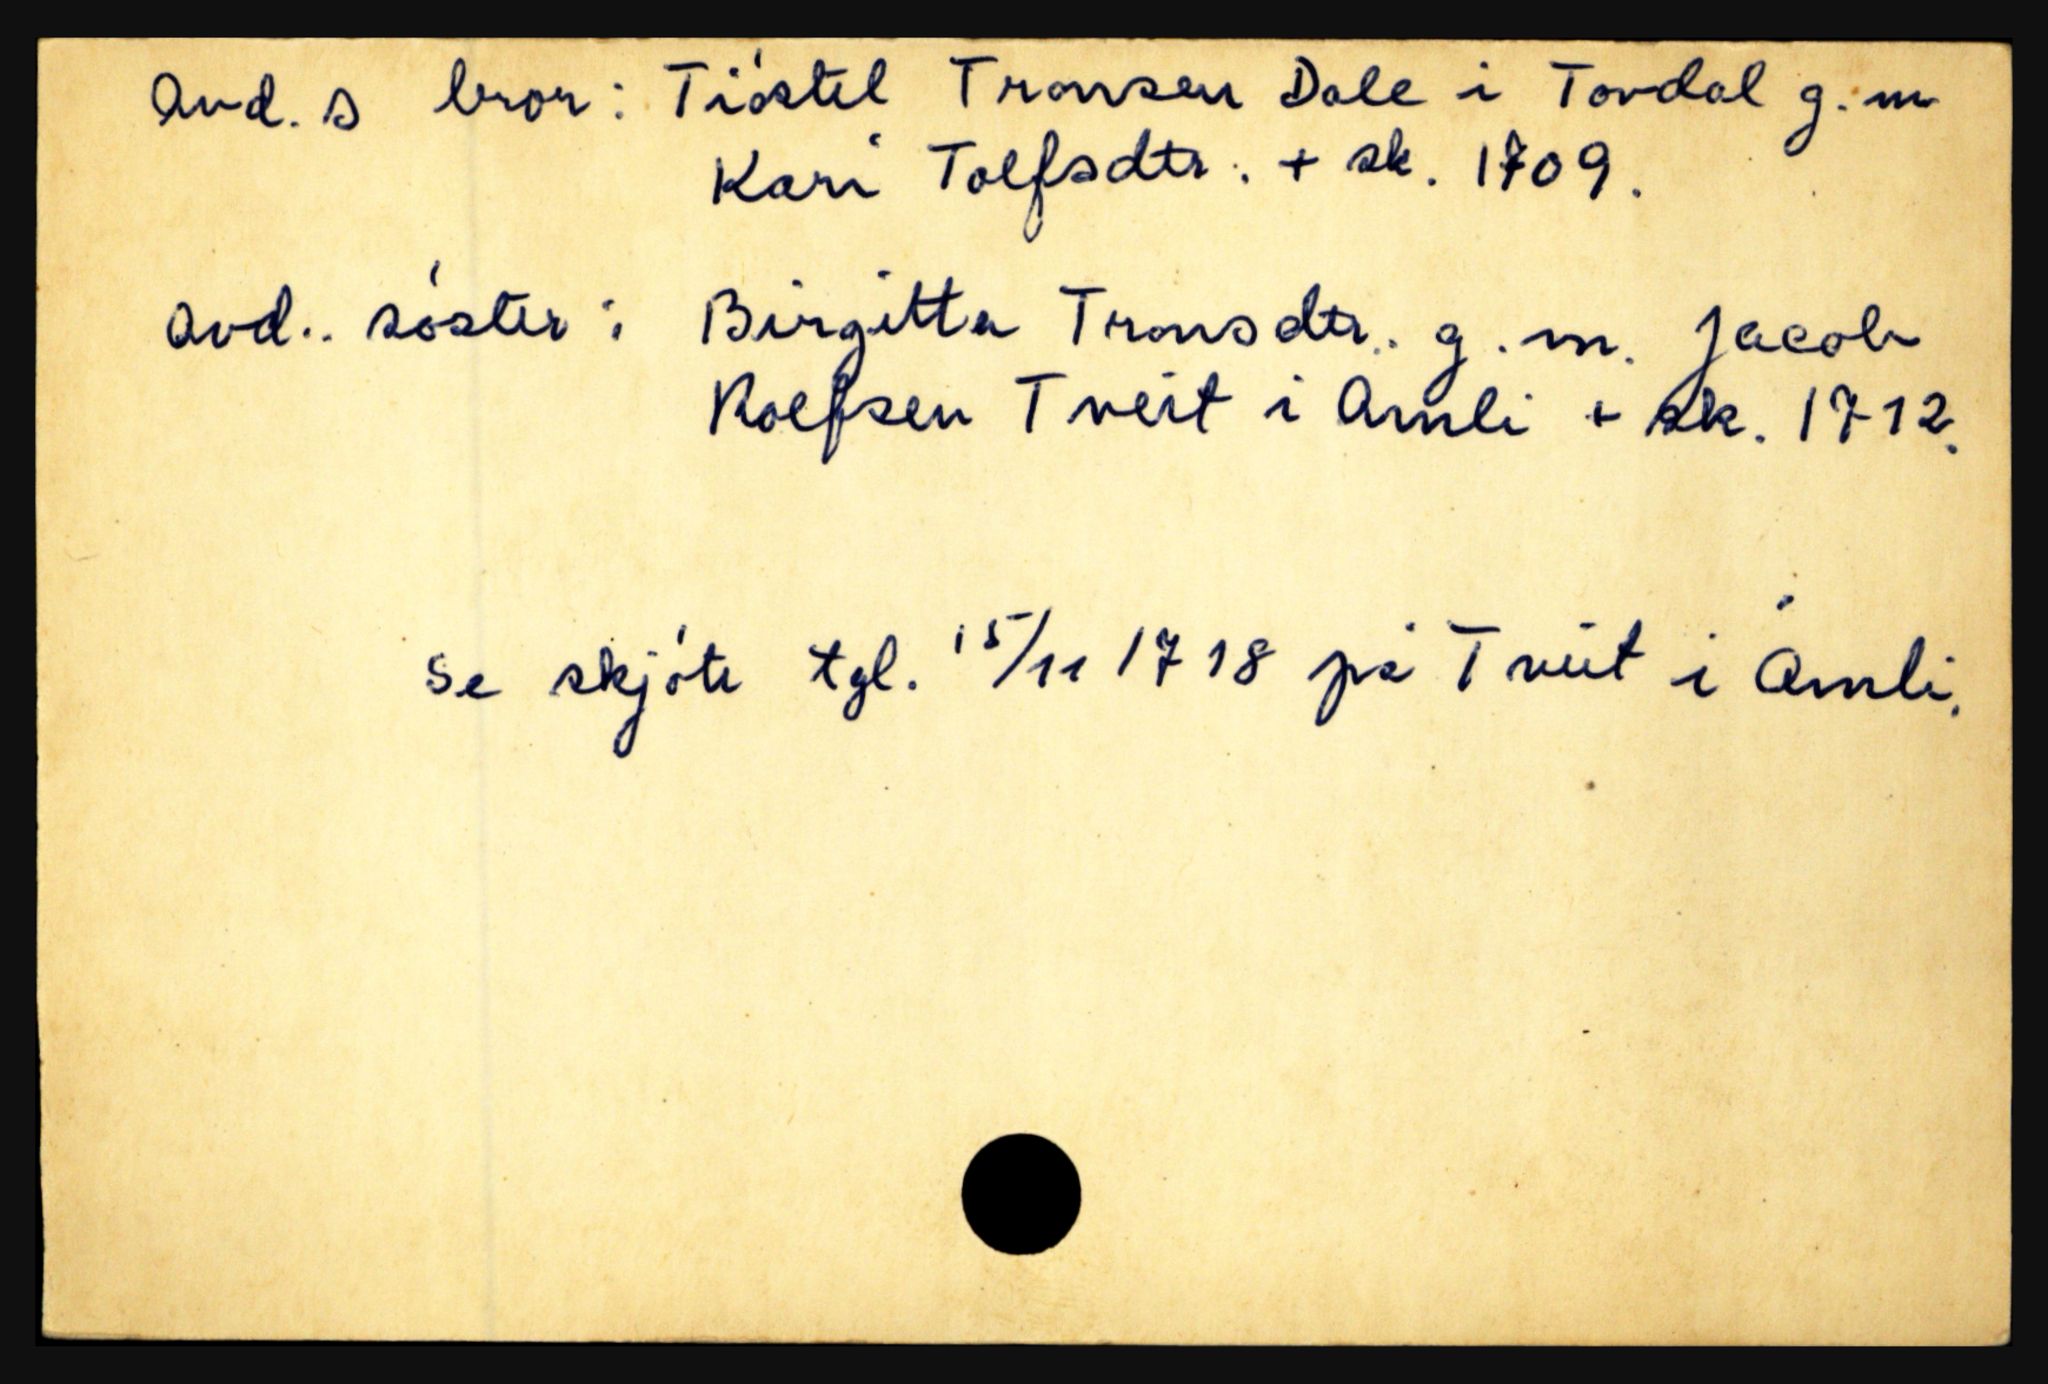 avd. s bror: Tióstel Tronsen Dale i Tovdal g.m
Kari Tolfsdtr. + sk. 1709.
avd.. sóster: Birgitta Tronsdtr. g.m. Jacob
Roefsen Tveit i Amli + sk. 1712.
Se skjóte tgl. 15/11 1718 på Tveit i Åmli.